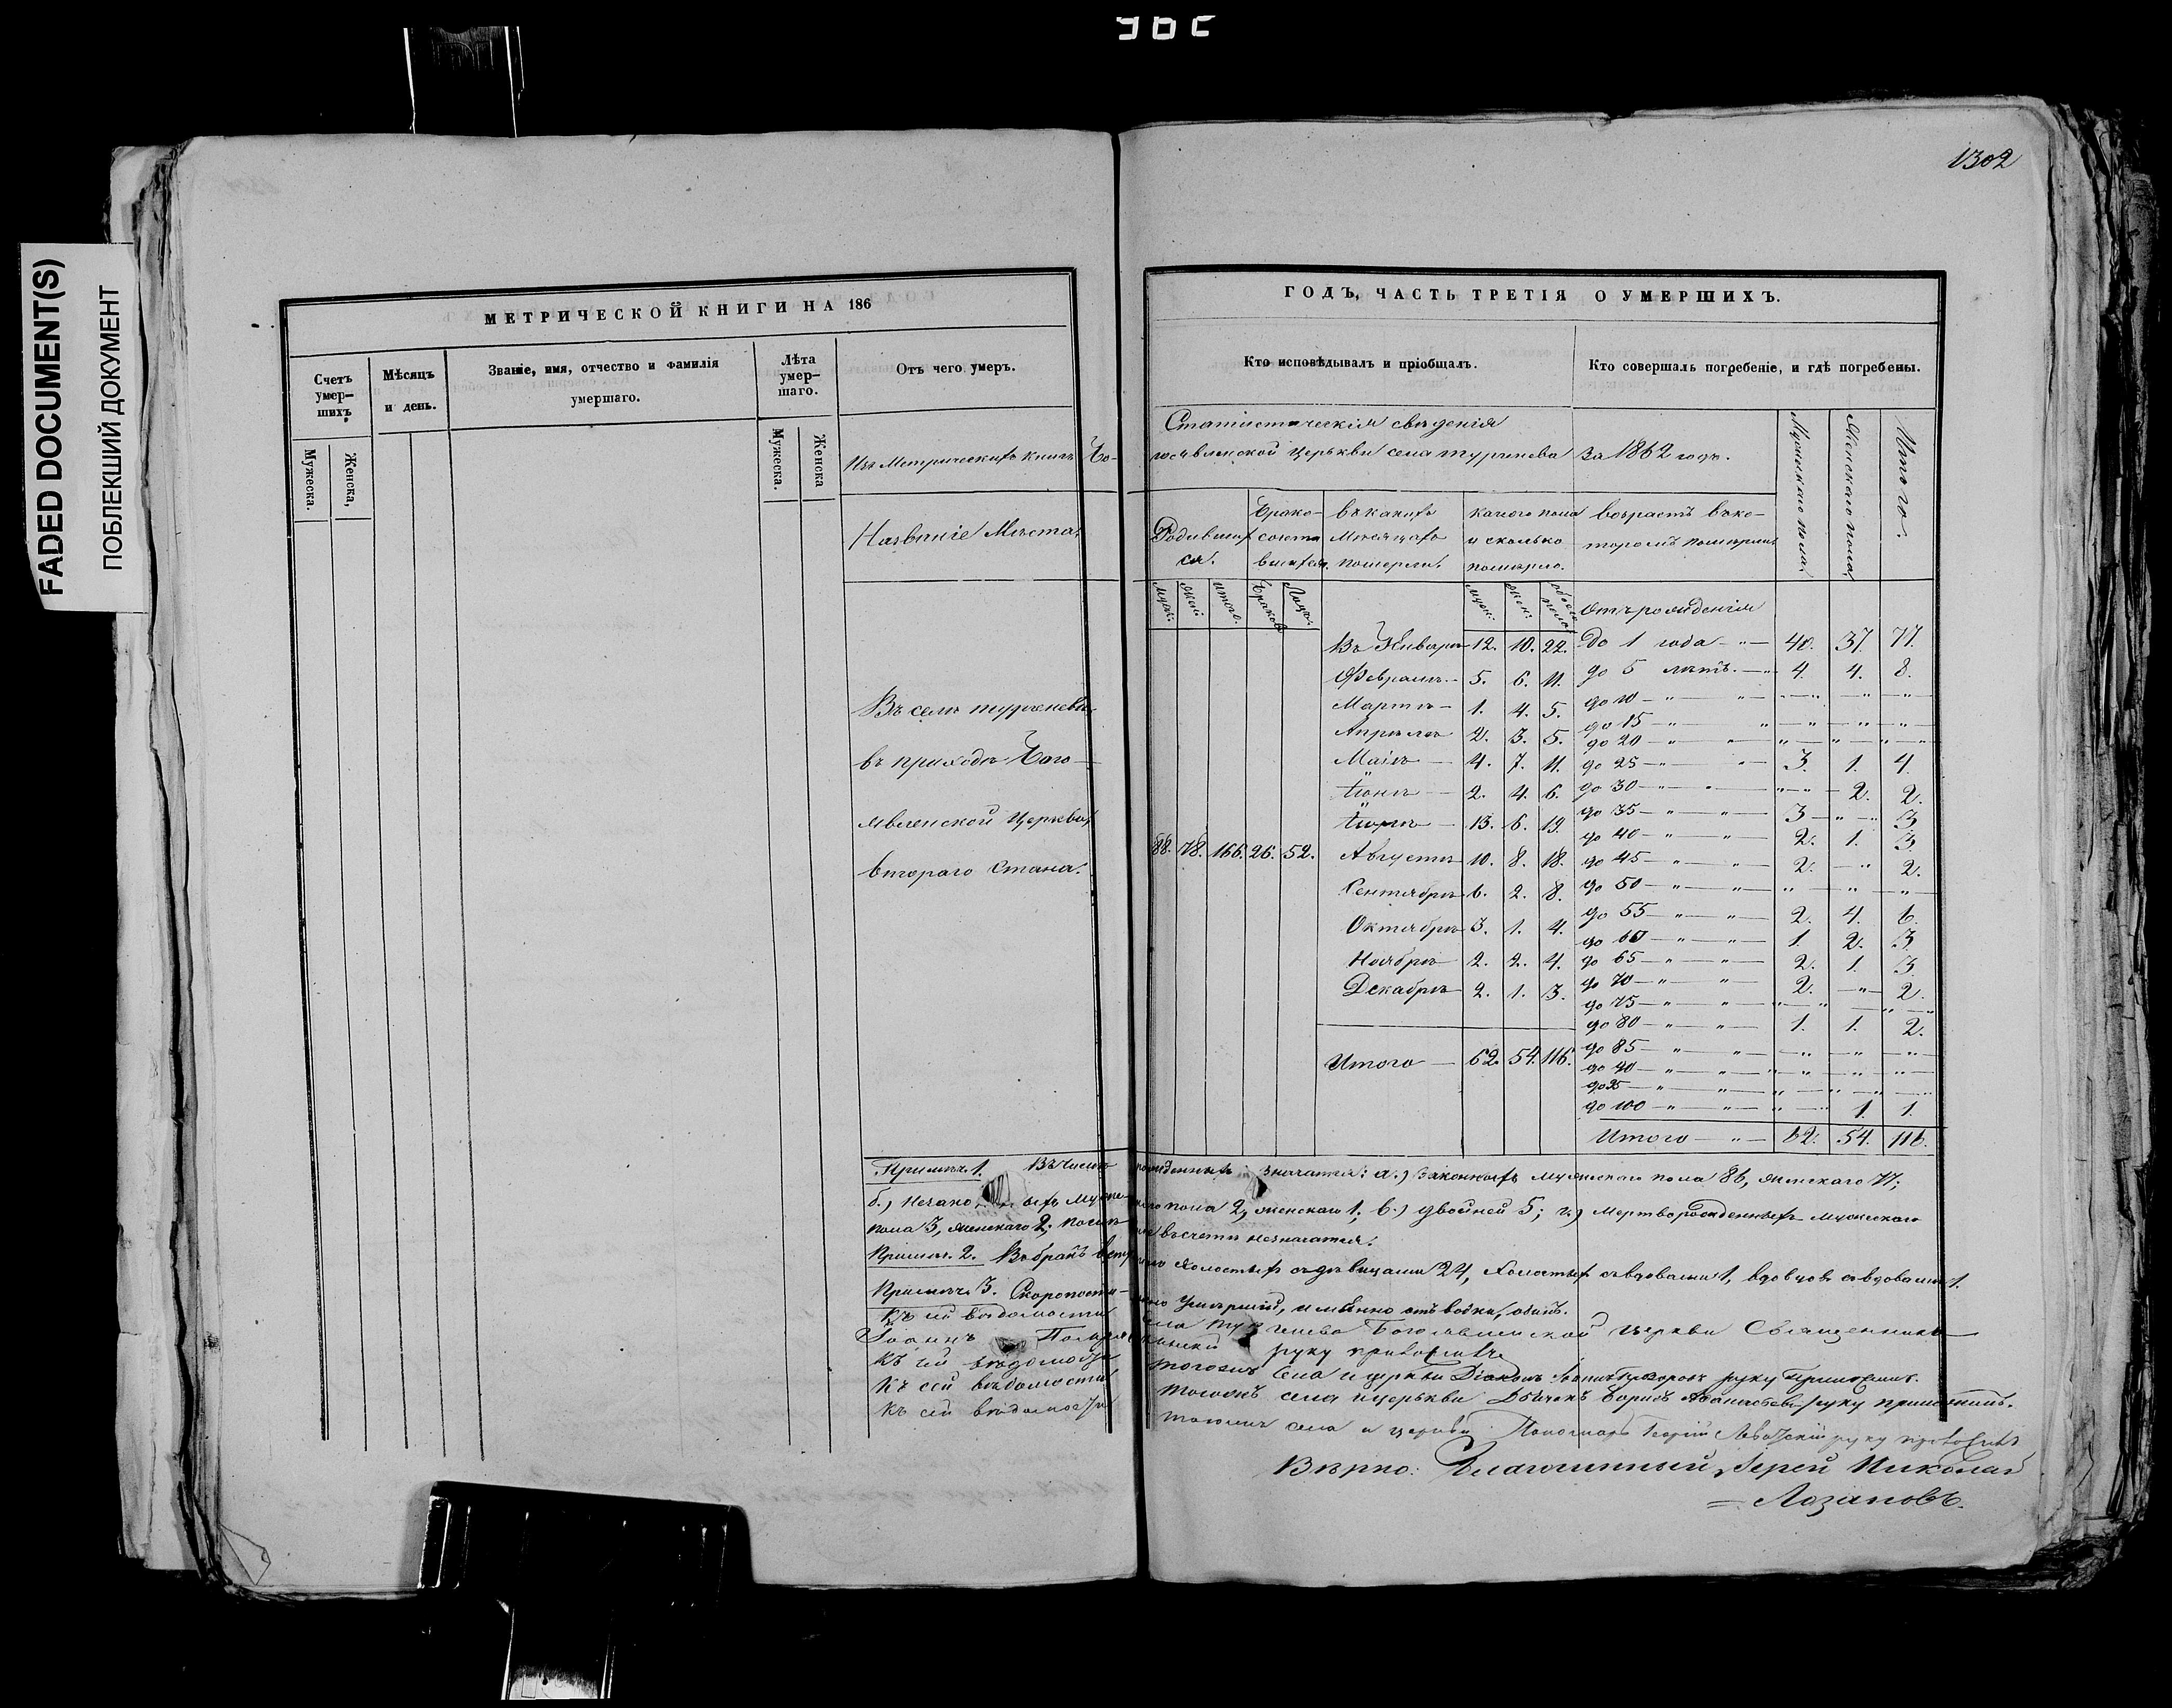 1302
FADED DOCUMENT(S)
ПОБЛЕКШИЙ ДОКУМЕНТ
МЕТРИЧЕСКОЙ КНИГИ НА 186
ГОДЪ, ЧАСТЬ ТРЕТІЯ О УМЕРШИХЪ.
Счетъ умер-шихъ
Мѣсяцъ и день.
Званіе, имя, отчество и фамилія умершаго.
Лѣта умер-шаго.
Отъ чего умеръ.
Кто исповѣдывалъ и пріобщалъ.
Кто совершалъ погребеніе, и гдѣ погребены.
Мужеска. Женска,
Мужеска. Женска
Статистическія свѣденія
Изъ Метрическихъ книгъ Бо-гоявленской церкви села Тургенева за 1862 годъ.
Мужескаго пола. Женскаго пола. Итого.
Названіе Мѣста.
Родившихся.
Бракосочетавшихся.
въ какихъ Месяцахъ померли.
какого пола и сколько померло.
возрастъ въ котором померли
муж. жен. итого. Браковъ Лицъ.
муж. жен. обоего пола
Отъ рожденія
Въ Январѣ 12. 10. 22. До 1 года - " - 40. 37. 77.
Февралѣ 5. 6. 11. до 5 лѣтъ. - " 4. 4. 8.
Мартѣ 1. 4. 5. до 10 - " - " - " - " - "
до 15 - " - " - " - " - "
Апрѣлѣ 2. 3. 5. до 20 - " - " - " - " - "
Маіѣ 4. 7. 11. до 25 - " - " 3. 1. 4.
Іюнѣ 2. 4. 6. до 30 - " - " - " - 2. 2.
до 35 - " - " 3 - " - 3
Іюлѣ 13. 6. 19. до 40 - " - " 2. 1. 3
Августѣ 10. 8. 18. до 45 - " - " 2. - " 2.
Сентябрѣ 6. 2. 8. до 50 - " - " - " - " - "
Октябрѣ 3. 1. 4. до 55 - " - " 2. 4. 6.
до 60 - " - " 1. 2. 3
Ноябрѣ 2. 2. 4. до 65 - " - " 2. 1. 3
до 70 - " - " 2. - " - 2.
Декабрѣ 2. 1. 3. до 75 - " - " - " - " - "
до 80 - " - " 1. 1. 2.
до 85 - " - " - " - " - "
до 90 - " - " - " - " - "
до 95 - " - " - " - " - "
до 100 - " - " - " 1. 1.
Итого 62. 54. 116.
Итого - " - 62. 54. 116.
Въ селѣ Тургеневѣ
въ приходѣ Бого-
явленской Церкви,
втораго Стана.
88. 78. 166. 26. 52.
Примѣч. 1. Въ числѣ рожденныхъ значатся: а.) законныхъ мужескаго пола 86, женскаго 77;
б.) незако ыхъ муже-скаго пола 2, женскаго 1; в.) двойней 5; г.) мертворожденныхъ мужескаго
пола 3, женскаго 2; въ счетъ не значатся.
Примѣч. 2. Въ бракъ холостыхъ съ дѣвицами 24, холостых съ вдовами 1, вдовцов съ вдовами 1.
Примѣч. 3. Скоропостижно умершій, именно отъ водки, одинъ.
Къ сей вѣдомости села Тургенева Богоявленской церкви Священникъ
Іоаннъ руку приложилъ
Къ сей вѣдомости тогожъ села и церкви Діаконъ руку приложилъ.
Къ сей вѣдомости тогожъ села и церкви Дьячекъ Борисъ руку приложилъ.
Къ сей вѣдомости тогожъ села и церкви Пономарь Георгій руку приложилъ
Вѣрно: Благочинный, Іерей Николай
Лозановъ.